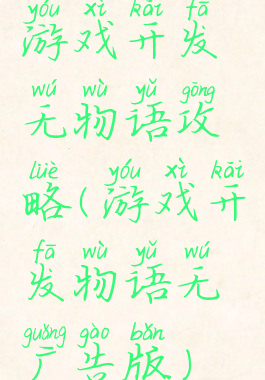 yóu xì kāi fā
游戏开发
wú wù yǔ gōng
无物语攻
lüè yóu xì kāi
略(游戏开
fā wù yǔ wú
发物语无
guǎng gào bǎn
广告版)